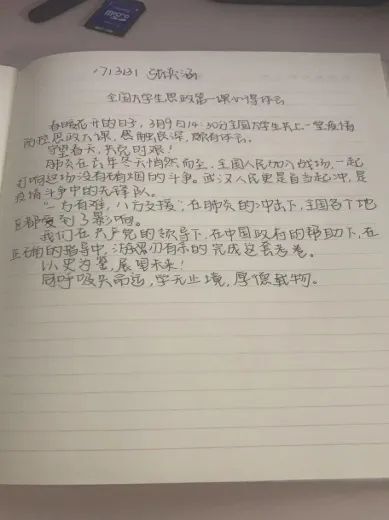 micro
1713131 张涵
全国大学生思政第一课心得体会
春暖花开的日子,3月9日14:30分全国大学生共上一堂疫情
防控思政大课,感触良深,颇有体会。
守望春天,共克时艰!
肺炎在去年冬天悄然而至,全国人民加入战场,一起
打响这场没有硝烟的斗争。武汉人民更是首当其冲,是
疫情斗争中的先锋队。
“一方有难,八方支援”,在肺炎的冲击下,全国各个地
区都受到了影响。
我们在共产党的领导下,在中国政府的帮助下,在
正确的指导中,游刃有余的完成这套考卷。
以史为鉴,展望未来!
同呼吸共命运,学无止境,厚德载物。